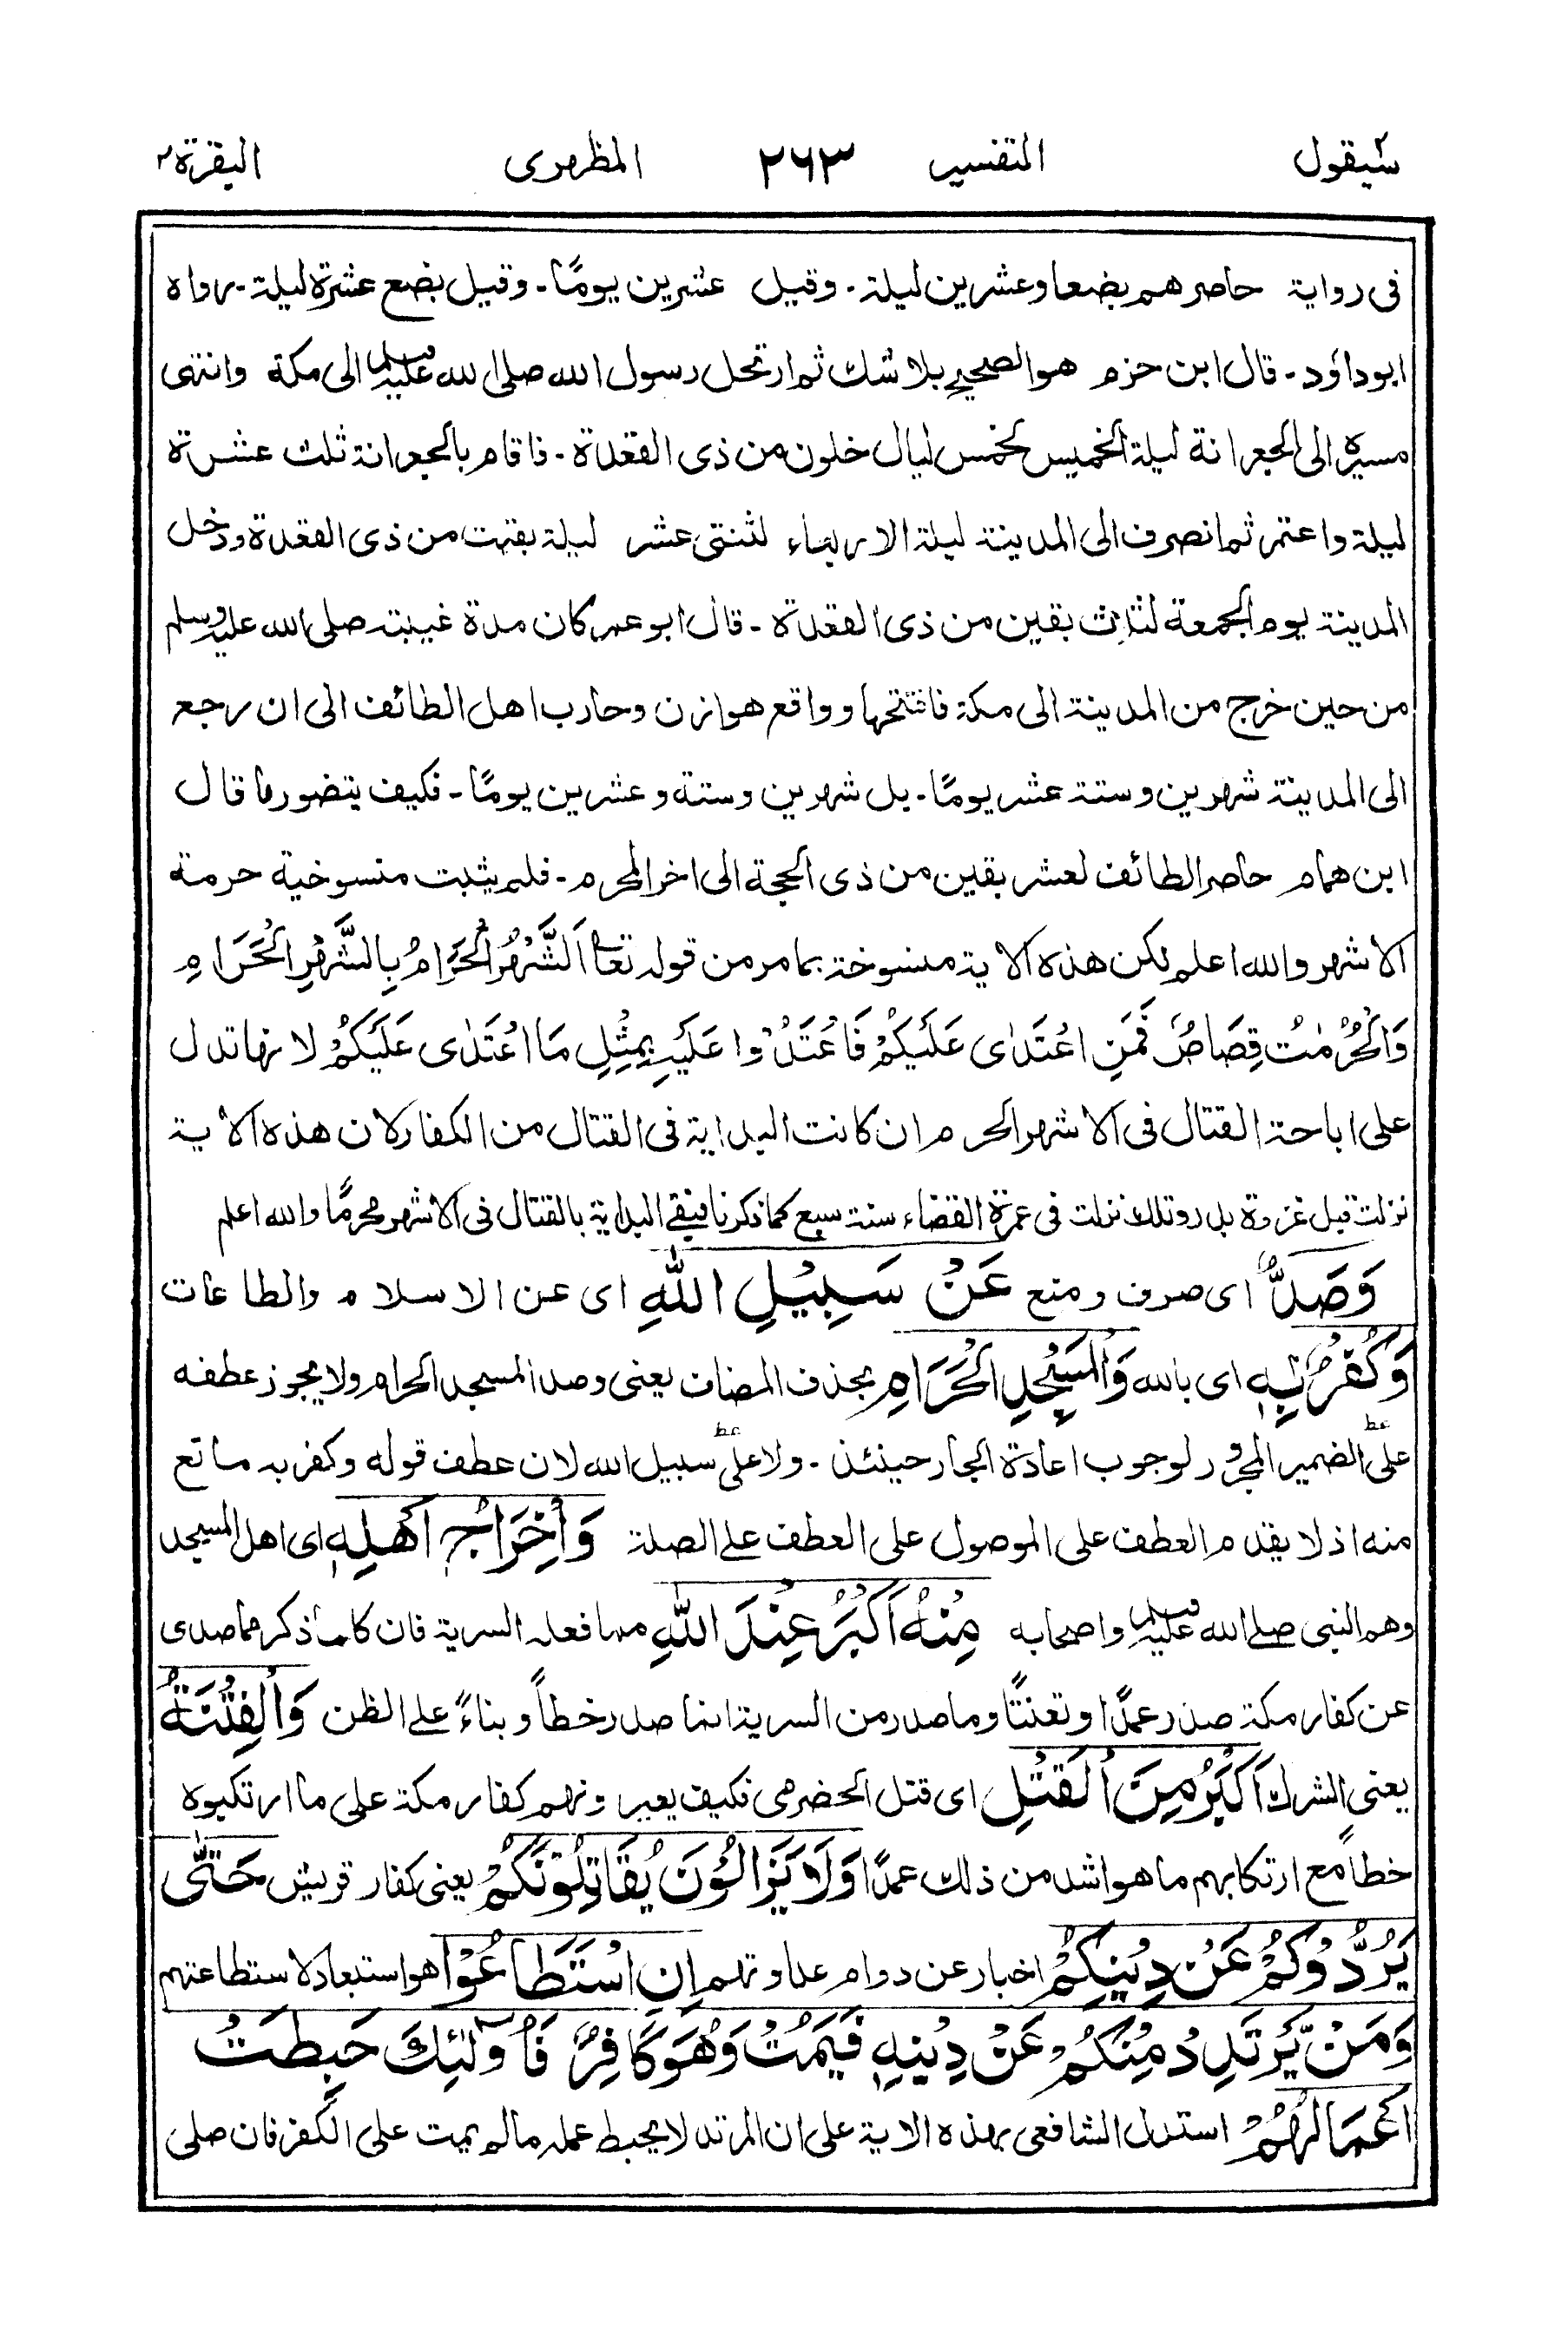 سيقول ٢ التفسير ٢٦٣ المظهرى البقرة ٢
فى رواية حاصرهم بضعا وعشرين ليلة ـ وقيل عشرين يومًا ـ وقيل بضع عشرة ليلة ـ رواه
ابوداؤد ـ قال ابن حزم هو الصحيح بلا شك ثم ارتحل رسول الله صلى الله عليه وسلم الى مكة وانتهى
مسيره الى الجعرانة ليلة الخميس لخمس ليال خلون من ذى القعدة ـ فاقام بالجعرانة ثلث عشرة
ليلة واعتمر ثم انصرف الى المدينة ليلة الاربعاء لثنتى عشر ليلة بقيت من ذى القعدة ودخل
المدينة يوم الجمعة لثلاث بقين من ذى القعدة ـ قال ابو عمر كان مدة غيبته صلى الله عليه وسلم
من حين خرج من المدينة الى مكة فافتتحها وواقع هوازن وحارب اهل الطائف الى ان رجع
الى المدينة شهرين وستة عشر يومًا ـ بل شهرين وستة وعشرين يومًا ـ فكيف يتصور ما قال
ابن همام حاصر الطائف لعشر بقين من ذى الحجة الى اخر المحرم ـ فلم يثبت منسوخية حرمة
الاشهر والله اعلم لكن هذه الاية منسوخة بما مر من قوله تعالى اَلشَّهْرُ الْحَرَامُ بِالشَّهْرِ الْحَرَامِ
وَالْحُرُمٰتُ قِصَاصٌ فَمَنِ اعْتَدٰى عَلَيْكُمْ فَاعْتَدُوْا عَلَيْهِ بِمِثْلِ مَا اعْتَدٰى عَلَيْكُمْ لانها تدل
على اباحة القتال فى الاشهر الحرم ان كانت البداية فى القتال من الكفار لان هذه الاية
نزلت قبل غزوة بدر وتلك نزلت فى عمرة القضاء سنة سبع كما ذكرنا فبقى البداية بالقتال فى الاشهر محرمًا والله اعلم
وَصَدٌّ اى صرف ومنع عَنْ سَبِيْلِ اللّٰهِ اى عن الاسلام والطاعات
وَكُفْرٌۢ بِهٖ اى بالله وَالْمَسْجِدِ الْحَرَامِ بحذف المضاف يعنى وصد المسجد الحرام ولا يجوز عطفه
على الضمير المجرور لوجوب اعادة الجار حينئذ ـ ولا على سبيل الله لان عطف قوله وكفر به مانع
منه اذ لا يقدم العطف على الموصول على العطف على الصلة وَاِخْرَاجُ اَهْلِهٖ اى اهل المسجد
وهم النبى صلى الله عليه وسلم واصحابه مِنْهُ اَكْبَرُ عِنْدَ اللّٰهِ مما فعله السرية فان كل ما ذكر مما صدى
عن كفار مكة صدر عمدًا وتعنتًا وما صدر من السرية انما صدر خطأً وبناءً على الظن وَالْفِتْنَةُ
يعنى الشرك اَكْبَرُ مِنَ الْقَتْلِ اى قتل الحضرمى فكيف يعيرونهم كفار مكة على ما ارتكبوه
خطأً مع ارتكابهم ما هو اشد من ذلك عمدًا وَلَا يَزَالُوْنَ يُقَاتِلُوْنَكُمْ يعنى كفار قريش حَتّٰى
يَرُدُّوْكُمْ عَنْ دِيْنِكُمْ اخبار عن دوام عداوتهم اِنِ اسْتَطَاعُوْا هو استبعاد لاستطاعتهم
وَمَنْ يَّرْتَدِدْ مِنْكُمْ عَنْ دِيْنِهٖ فَيَمُتْ وَهُوَ كَافِرٌ فَاُولٰٓئِكَ حَبِطَتْ
اَعْمَالُهُمْ استدل الشافعى بهذه الاية على ان المرتد لا يحبط عمله ما لم يمت على الكفر فان صلى